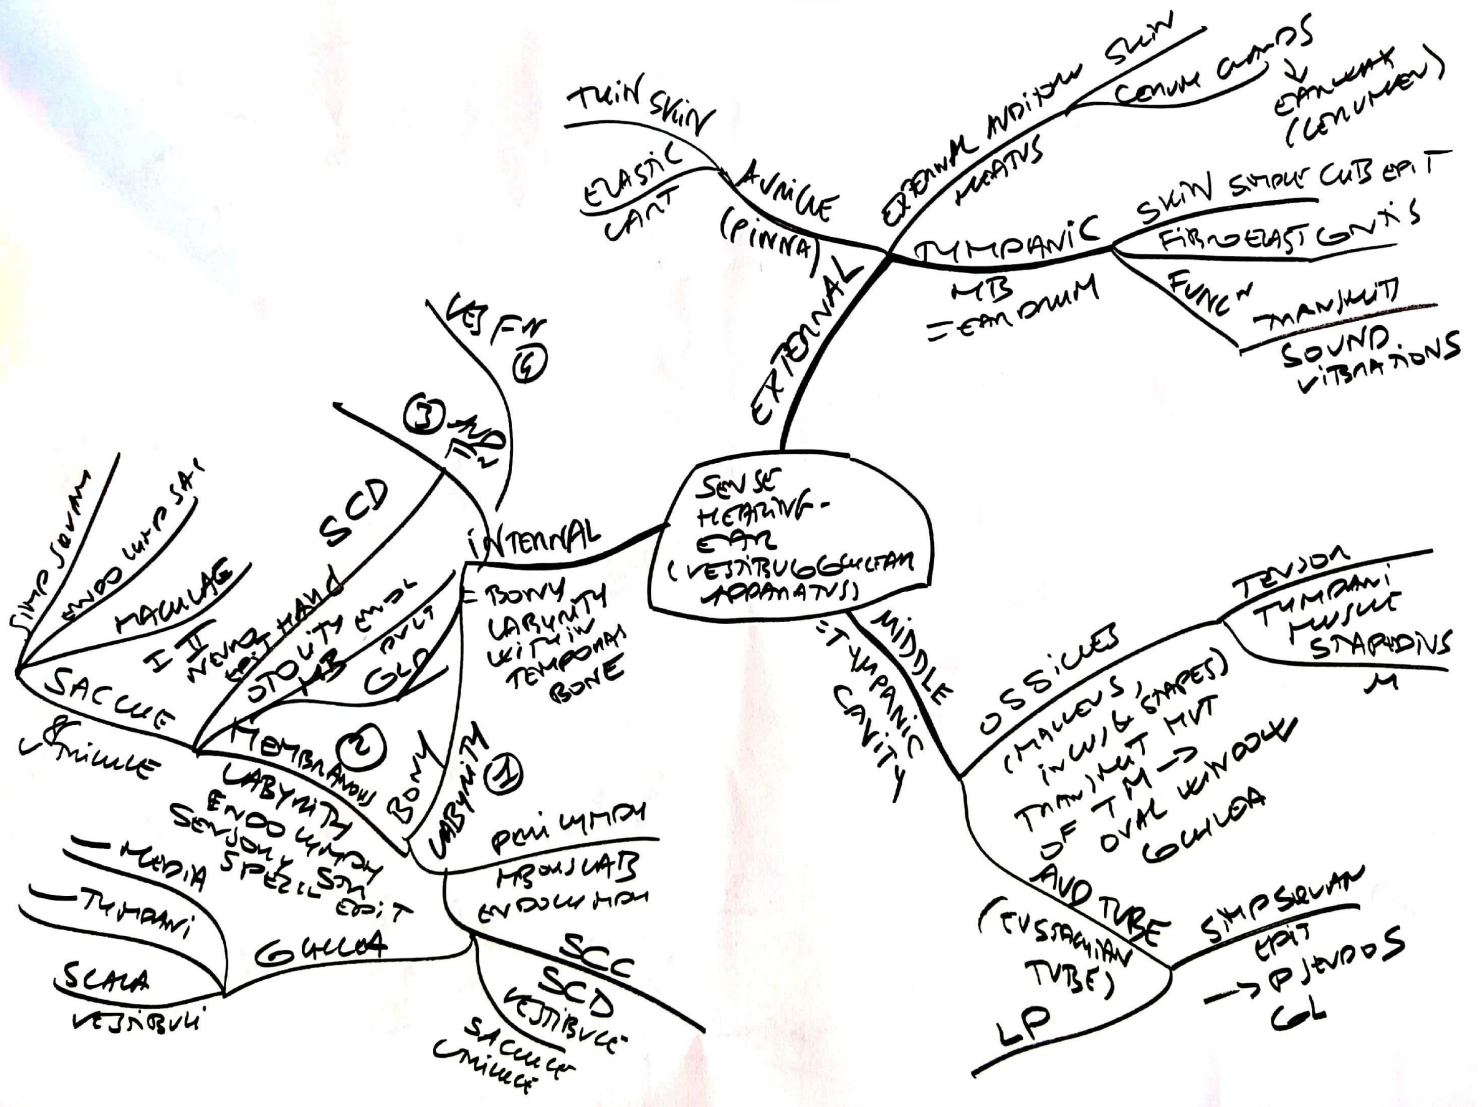 SENSE
HEARING-
EAR
(VESTIBULOCOCHLEAR
APPARATUS)
EXTERNAL
AURICLE
(PINNA)
THIN SKIN
ELASTIC
CART
EXTERNAL AUDITORY
MEATUS
SKIN
CERUM GLANDS
EARWAX
(CERUMEN)
TYMPANIC
MB
= EARDRUM
SKIN SIMPLE CUB EPIT
FIBROELAST CONTIS
FUNCN
TRANSMITS
SOUND
VIBRATIONS
MIDDLE
= TYMPANIC
CAVITY
OSSICLES
(MALLEUS,
INCUS & STAPES)
TRANSMIT MVT
OF TM →
OVAL WINDOW
COCHLEA
TENSOR
TYMPANI
MUSCLE
STAPEDIUS
M
AUD TUBE
(EUSTACHIAN
TUBE)
SIMP SQUAM
EPIT
→ PSEUDOS
COL
LP
INTERNAL
= BONY
LABYRINTH
WITHIN
TEMPORAL
BONE
BONY
LABYRINTH ①
PERILYMPH
MBOUS LAB
ENDOLYMPH
SCC
SCD
VESTIBULE
SACCULE
UTRICULE
COCHLEA
MEDIA
TYMPANI
SCALA
VESTIBULI
MEMBRANOUS ②
LABYRINTH
ENDOLYMPH
SENSORY STR
SPECIL EPIT
SACCULE
& UTRICULE
SIMP SQUAM
ENDOLYMP SAC
MACULAE
I II
NEURO
EPIT HAIR
OTOLITH
MB
GLP
SCD
③
VES FN
④